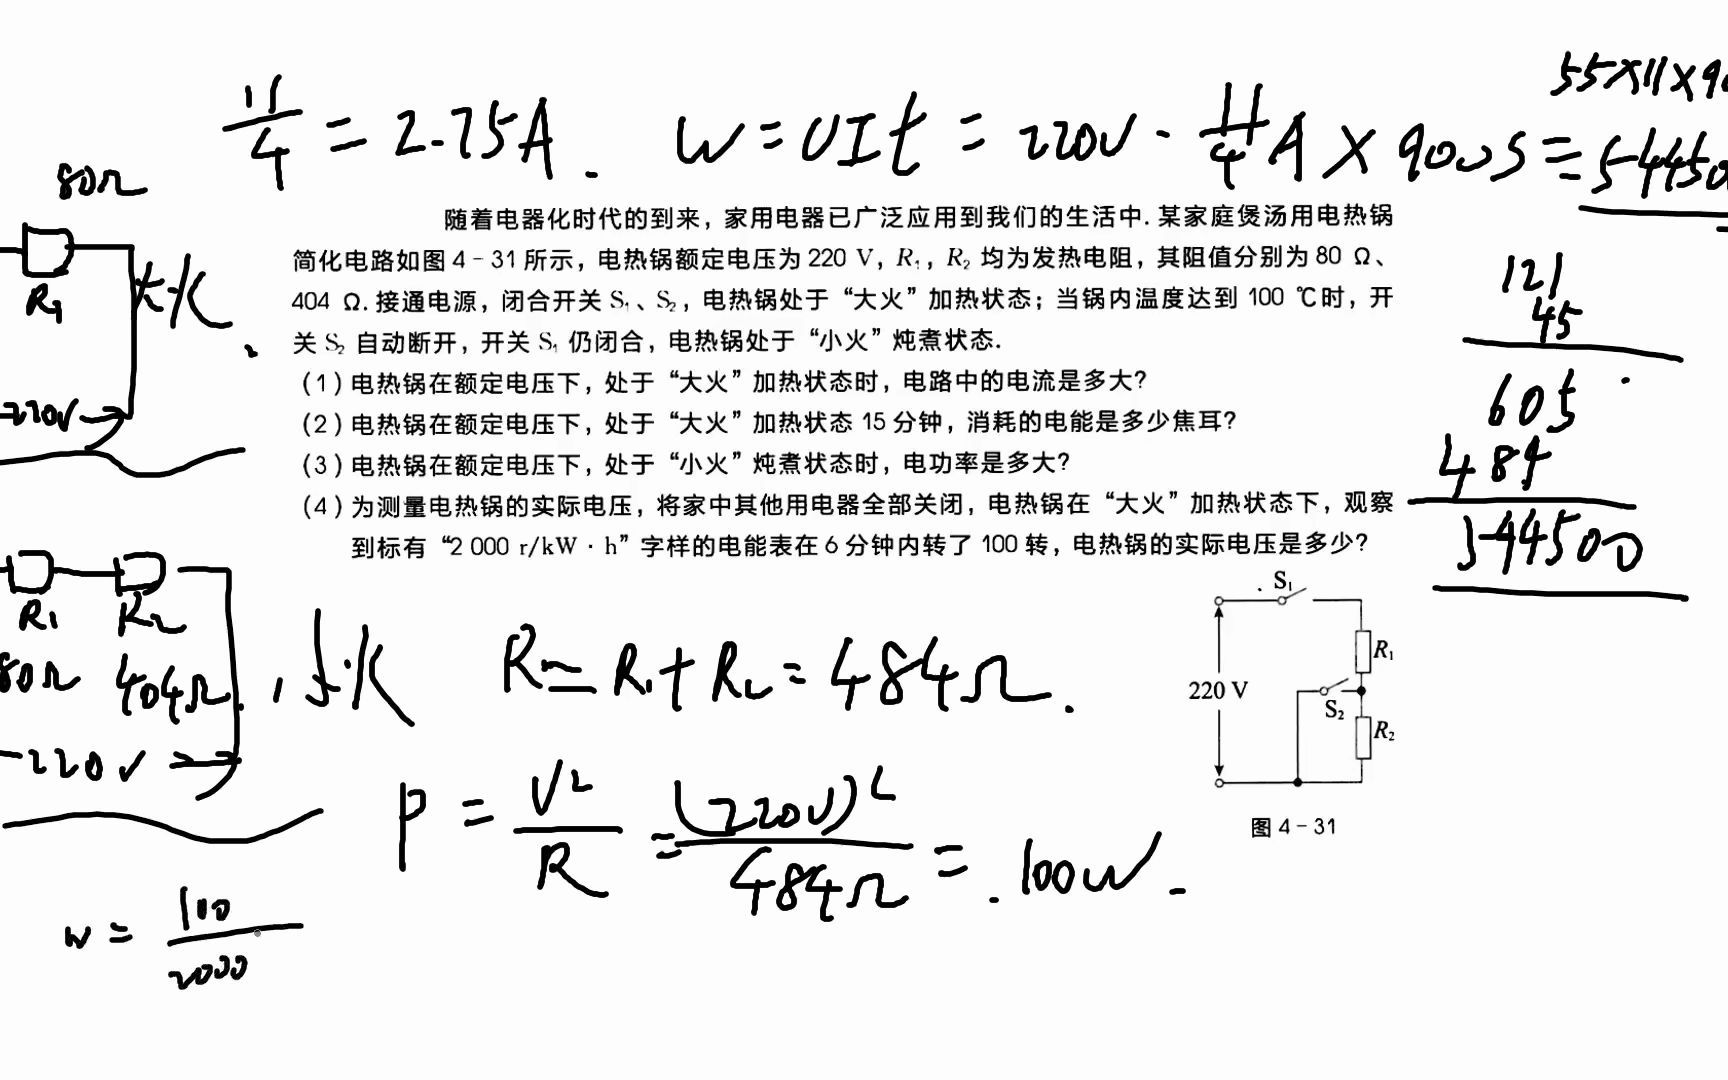 11/4 = 2.75A. W = UIt = 220V · 11/4 A × 900s = 54450
55×11×90
80Ω
R1
大火.
220V
随着电器化时代的到来，家用电器已广泛应用到我们的生活中. 某家庭煲汤用电热锅
简化电路如图 4－31 所示，电热锅额定电压为 220 V，R₁，R₂ 均为发热电阻，其阻值分别为 80 Ω、
404 Ω. 接通电源，闭合开关 S₁、S₂，电热锅处于“大火”加热状态；当锅内温度达到 100 ℃时，开
关 S₂ 自动断开，开关 S₁ 仍闭合，电热锅处于“小火”炖煮状态.
(1) 电热锅在额定电压下，处于“大火”加热状态时，电路中的电流是多大？
(2) 电热锅在额定电压下，处于“大火”加热状态 15 分钟，消耗的电能是多少焦耳？
(3) 电热锅在额定电压下，处于“小火”炖煮状态时，电功率是多大？
(4) 为测量电热锅的实际电压，将家中其他用电器全部关闭，电热锅在“大火”加热状态下，观察
到标有“2 000 r/kW · h”字样的电能表在 6 分钟内转了 100 转，电热锅的实际电压是多少？
121
45
605
484
544500
S₁
R₁
220 V
S₂
R₂
图 4－31
R1 R2
80Ω 404Ω.
小火
220V
R = R1 + R2 = 484Ω.
P = U²/R = (220V)²/484Ω = 100W.
W = 100/2000